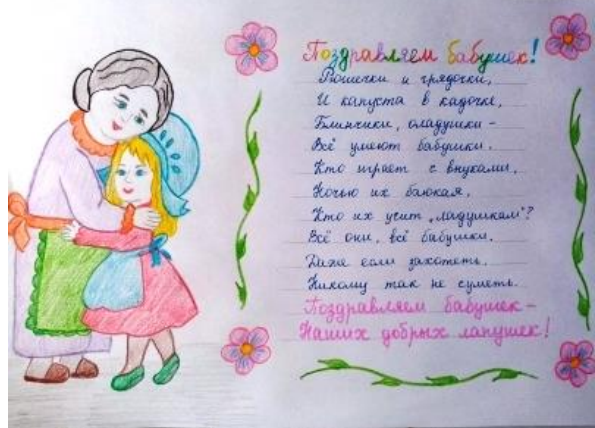 Поздравляем бабушек!
Рюшечки и грядочки,
И капуста в кадочке,
Блинчики, оладушки –
Всё умеют бабушки.
Кто играет с внуками,
Ночью их баюкая,
Кто их учит „ладушкам"?
Всё они, всё бабушки.
Даже если захотеть,
Никому так не суметь.
Поздравляем бабушек –
Наших добрых лапушек!